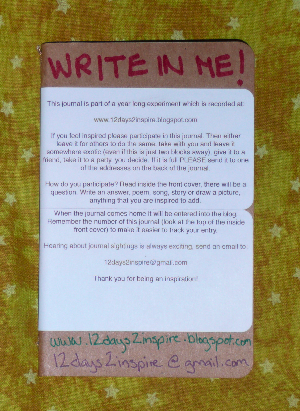 WRITE IN ME!
This journal is part of a year long experiment which is recorded at:
www.12days2inspire.blogspot.com
If you feel inspired please participate in this journal. Then either
leave it for others to do the same, take with you and leave it
somewhere exotic (even if this is just two blocks away), give it to a
friend, take it to a party, you decide. If it is full PLEASE send it to one
of the addresses on the back of the journal.
How do you participate? Read inside the front cover, there will be a
question. Write an answer, poem, song, story or draw a picture,
anything that you are inspired to add.
When the journal comes home it will be entered into the blog.
Remember the number of this journal (look at the top of the inside
front cover) to make it easier to track your entry.
Hearing about journal sightings is always exciting, send an email to:
12days2inspire@gmail.com
Thank you for being an inspiration!
www.12days2inspire.blogspot.com
12days2inspire@gmail.com